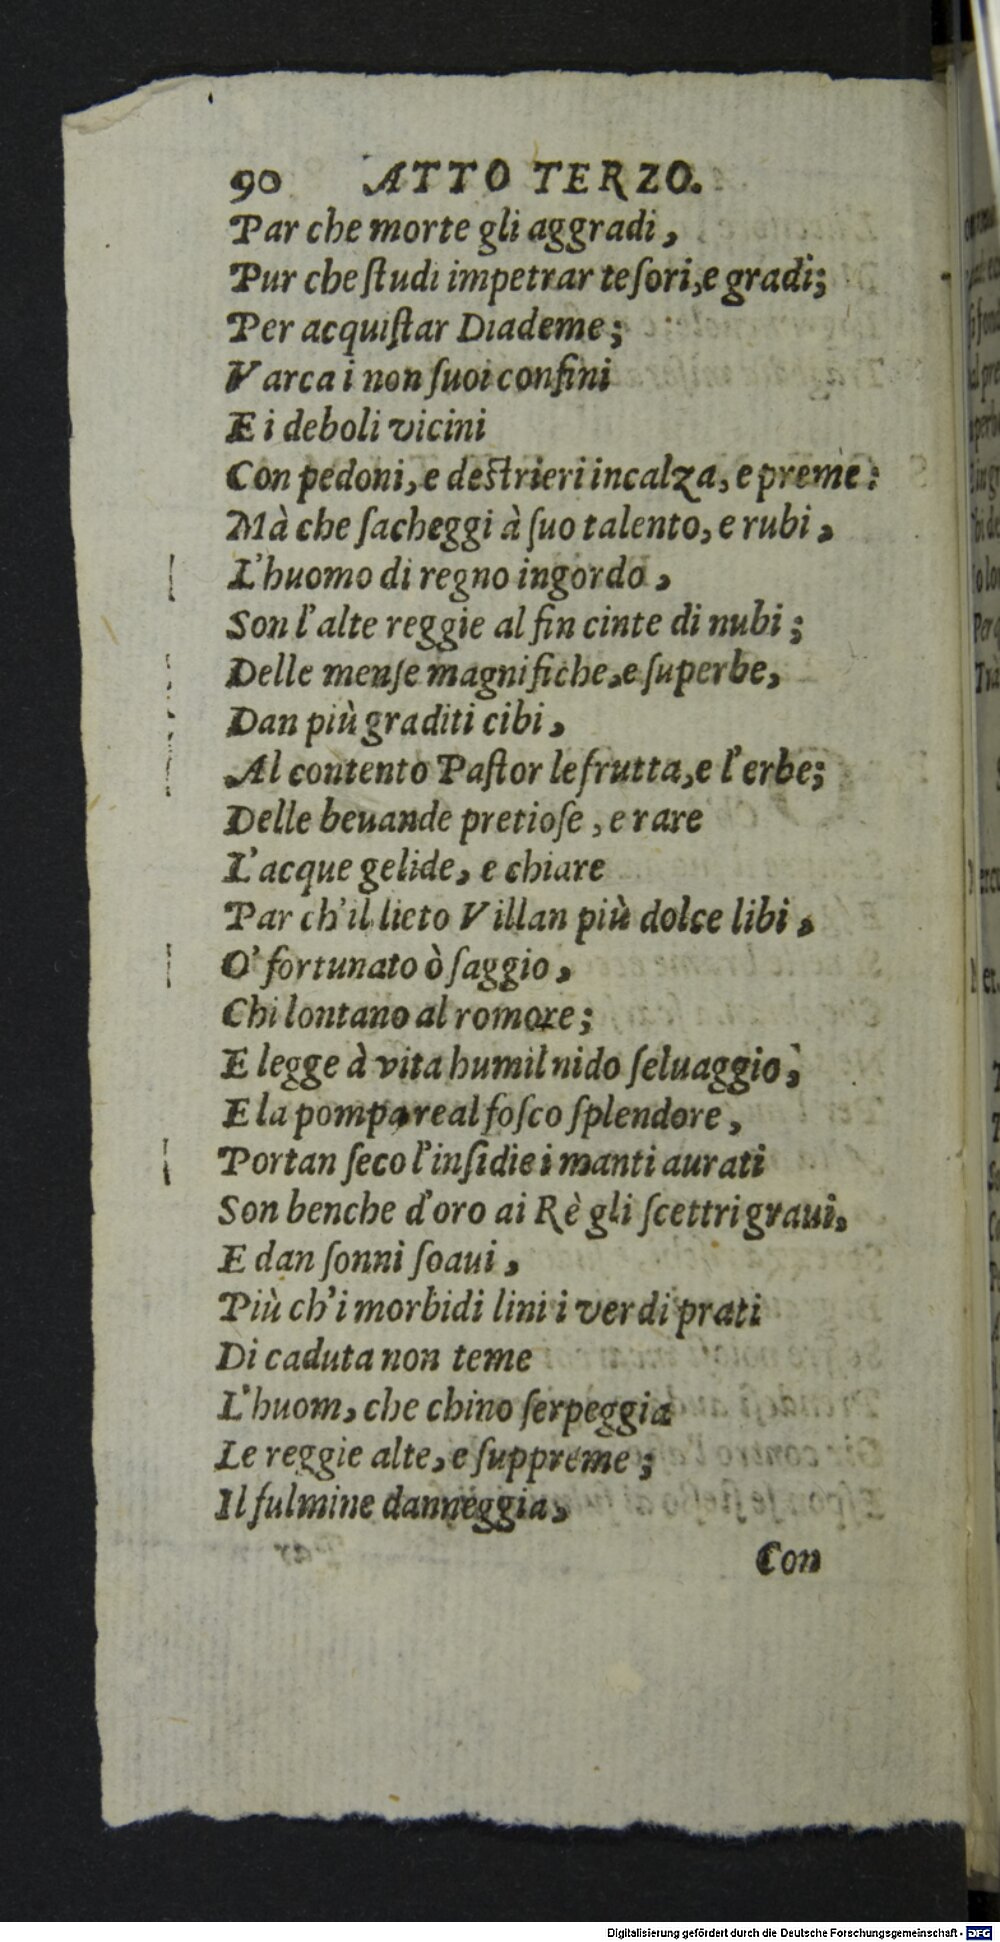 90 ATTO TERZO.
Par che morte gli aggradi,
Pur che ſtudi impetrar teſori, e gradi;
Per acquiſtar Diademe;
Varca i non ſuoi confini
E i deboli vicini
Con pedoni, e deſtrieri incalza, e preme:
Mà che ſacheggi à ſuo talento, e rubi,
L'huomo di regno ingordo,
Son l'alte reggie al fin cinte di nubi;
Delle menſe magnifiche, e ſuperbe,
Dan più graditi cibi,
Al contento Paſtor le frutta, e l'erbe;
Delle beuande pretioſe, e rare
L'acque gelide, e chiare
Par ch'il lieto Villan più dolce libi,
O' fortunato ò ſaggio,
Chi lontano al romore;
E legge à vita humil nido ſeluaggio,
E la pompa real foſco ſplendore,
Portan ſeco l'inſidie i manti aurati
Son benche d'oro ai Rè gli ſcettri graui,
E dan ſonni ſoaui,
Più ch'i morbidi lini i verdi prati
Di caduta non teme
L'huom, che chino ſerpeggia
Le reggie alte, e ſuppreme;
Il fulmine danneggia,
Con
Digitalisierung gefördert durch die Deutsche Forschungsgemeinschaft - DFG